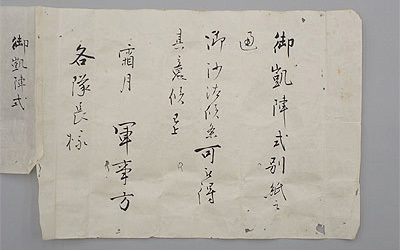 御凱陣式別紙之
通
御沙汰候条可被得
其意候已上
霜月 軍事方
各隊長様
御凱陣式